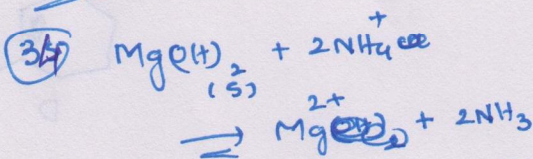 34 Mg(OH)₂ + 2NH₄⁺
(s)
⇌ Mg²⁺ + 2NH₃